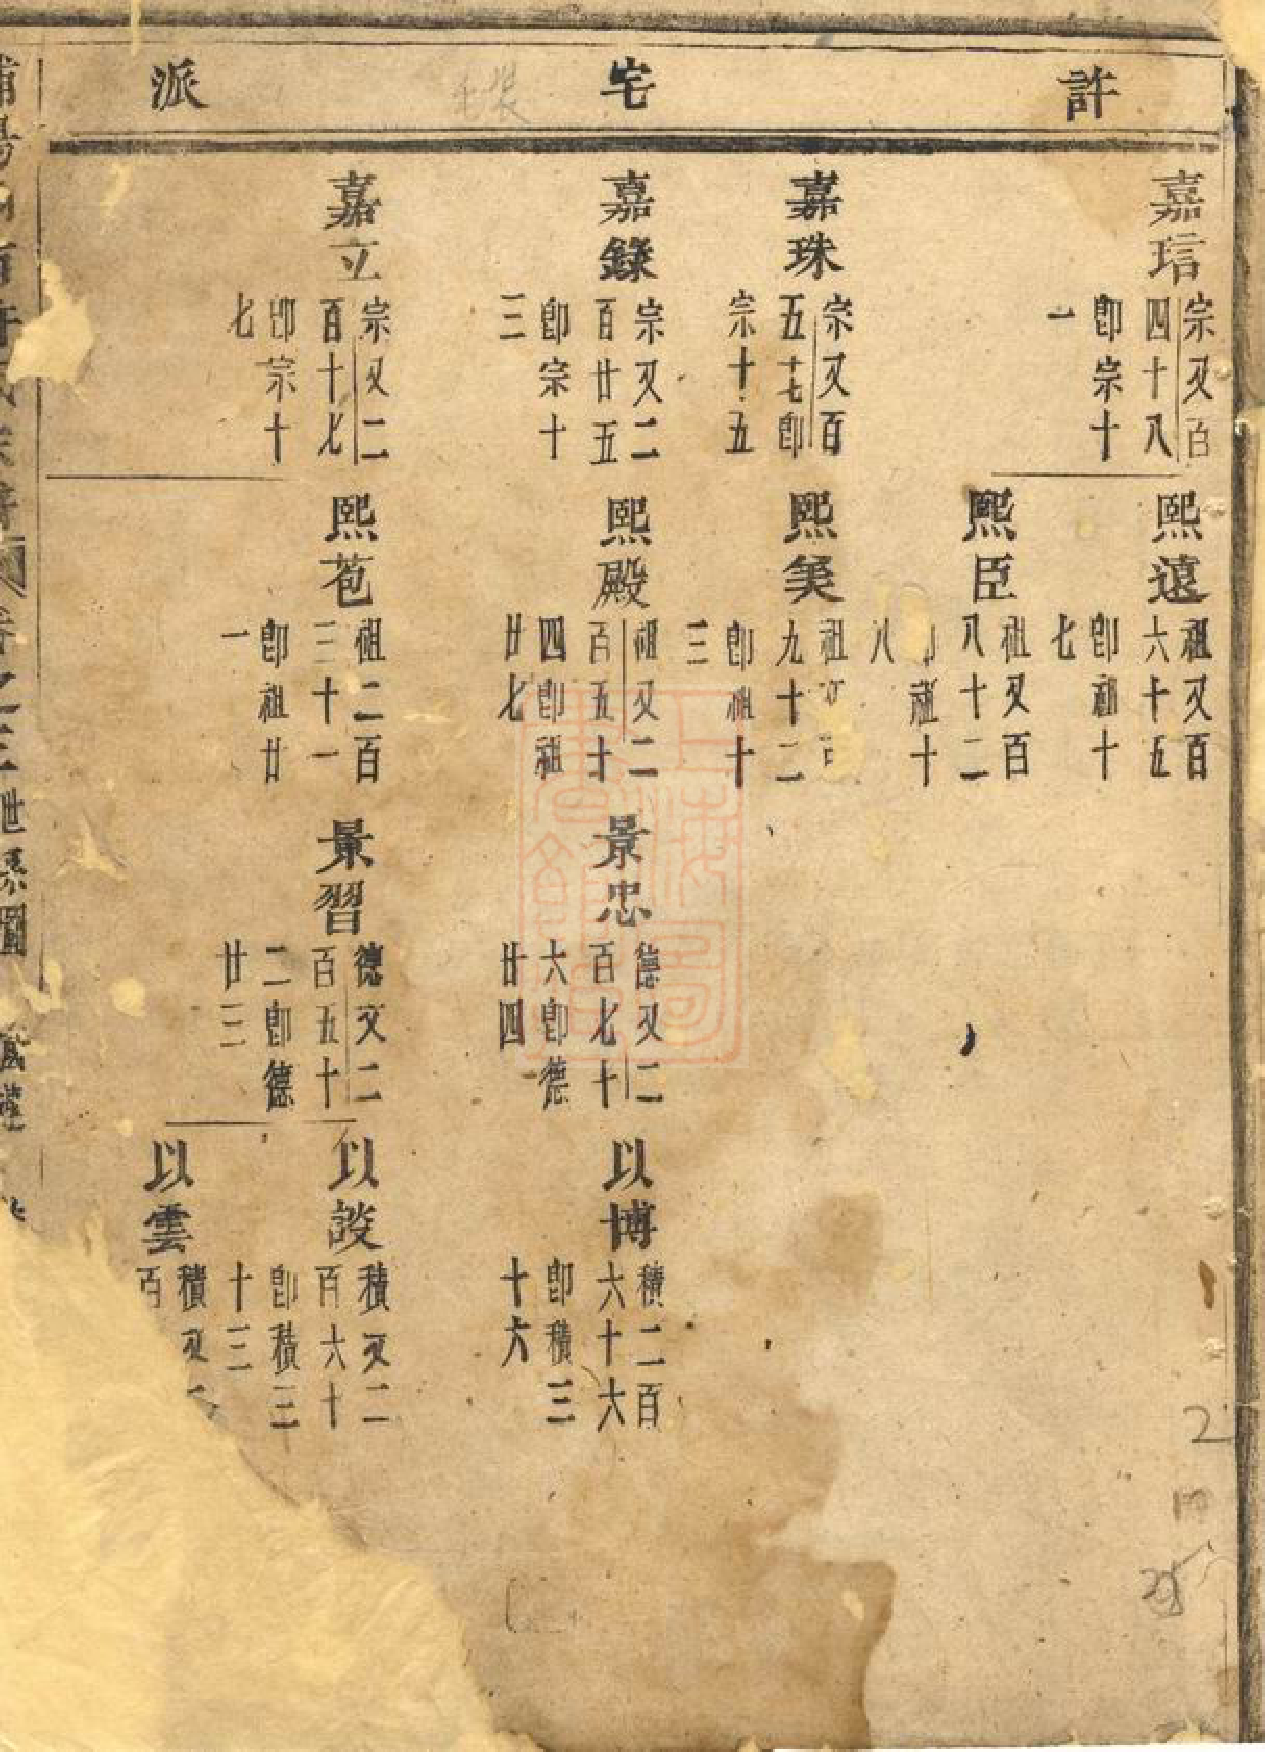 許宅派
嘉琂
宗又百
四十八
即宗十
一
嘉珠
宗又百
五十七即
宗十五
嘉錄
宗又二
百廿五
即宗十
三
嘉立
宗又二
百十七
即宗十
七
熙遠
祖又百
六十五
即祖十
七
熙臣
祖又百
八十二
祖十
八
熙美
祖又
九十二
即祖十
三
熙殿
祖又二
百五十
四即祖
廿七
熙苞
祖二百
三十一
即祖廿
一
景忠
德又二
百七十
六即德
廿四
景習
德又二
百五十
二即德
廿三
以博
積二百
六十六
即積三
十六
以談
積又二
百六十
即積三
十三
以雲
積又二
百
卷之三世系圖